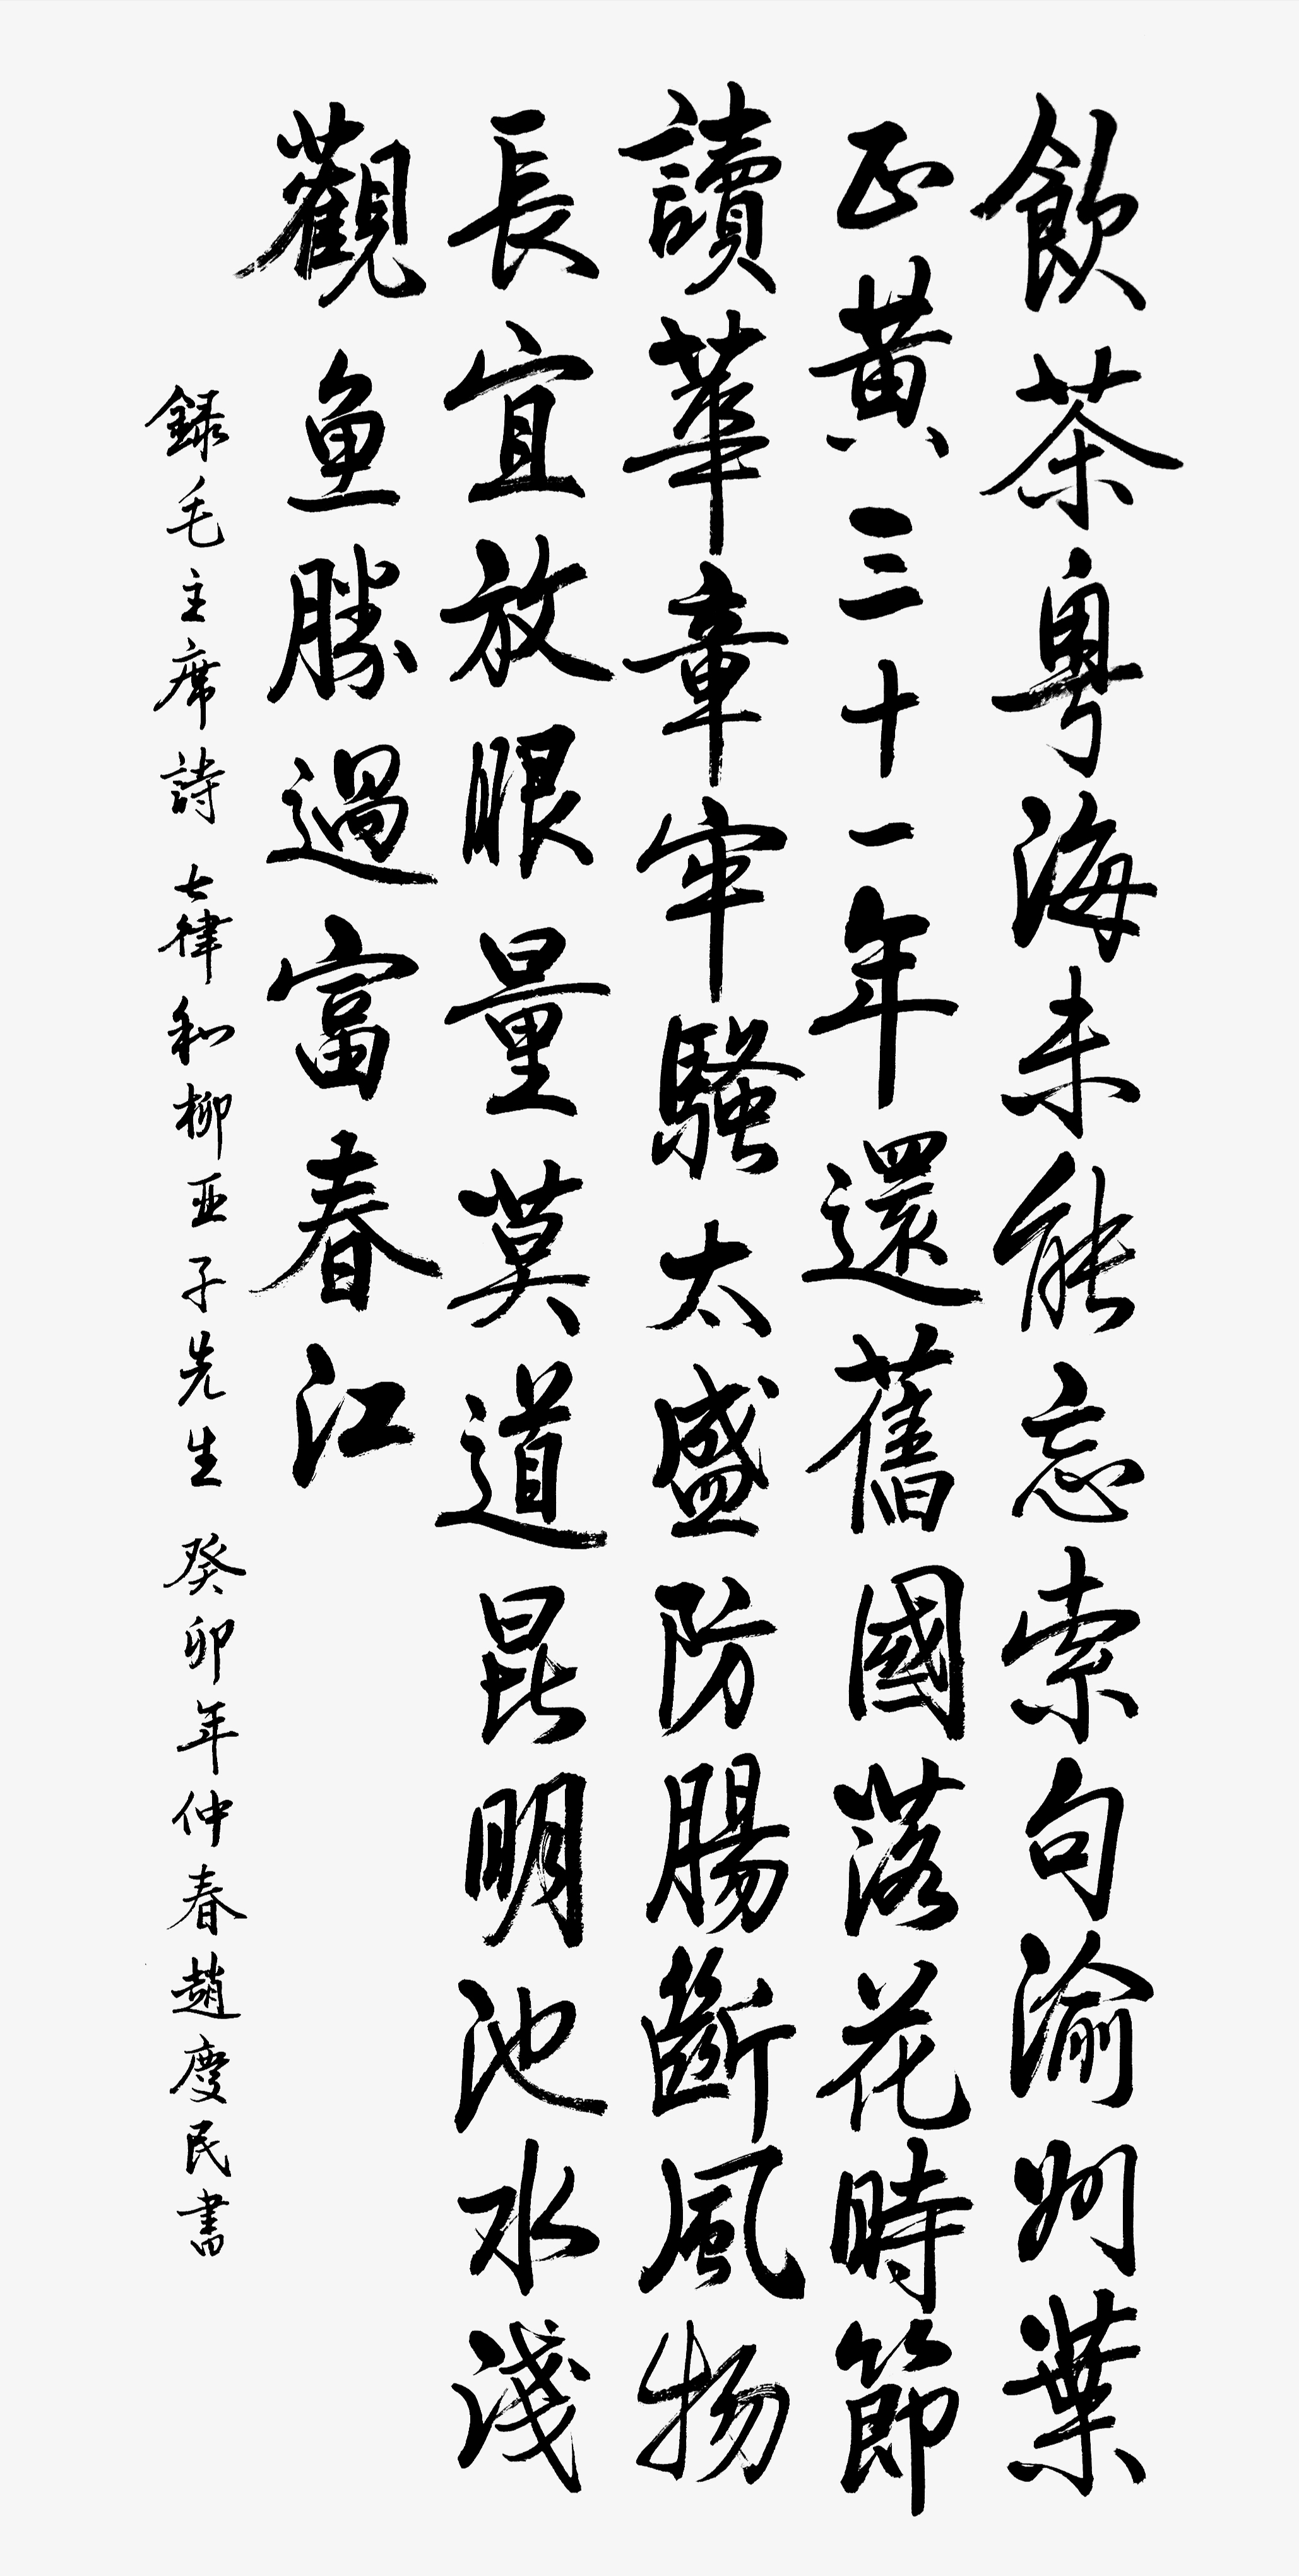 飲茶粵海未能忘索句渝州葉
正黄三十一年還舊國落花時節
讀華章牢騷太盛防腸斷風物
長宜放眼量莫道昆明池水淺
觀鱼勝過富春江
録毛主席詩 七律和柳亚子先生 癸卯年仲春趙慶民書